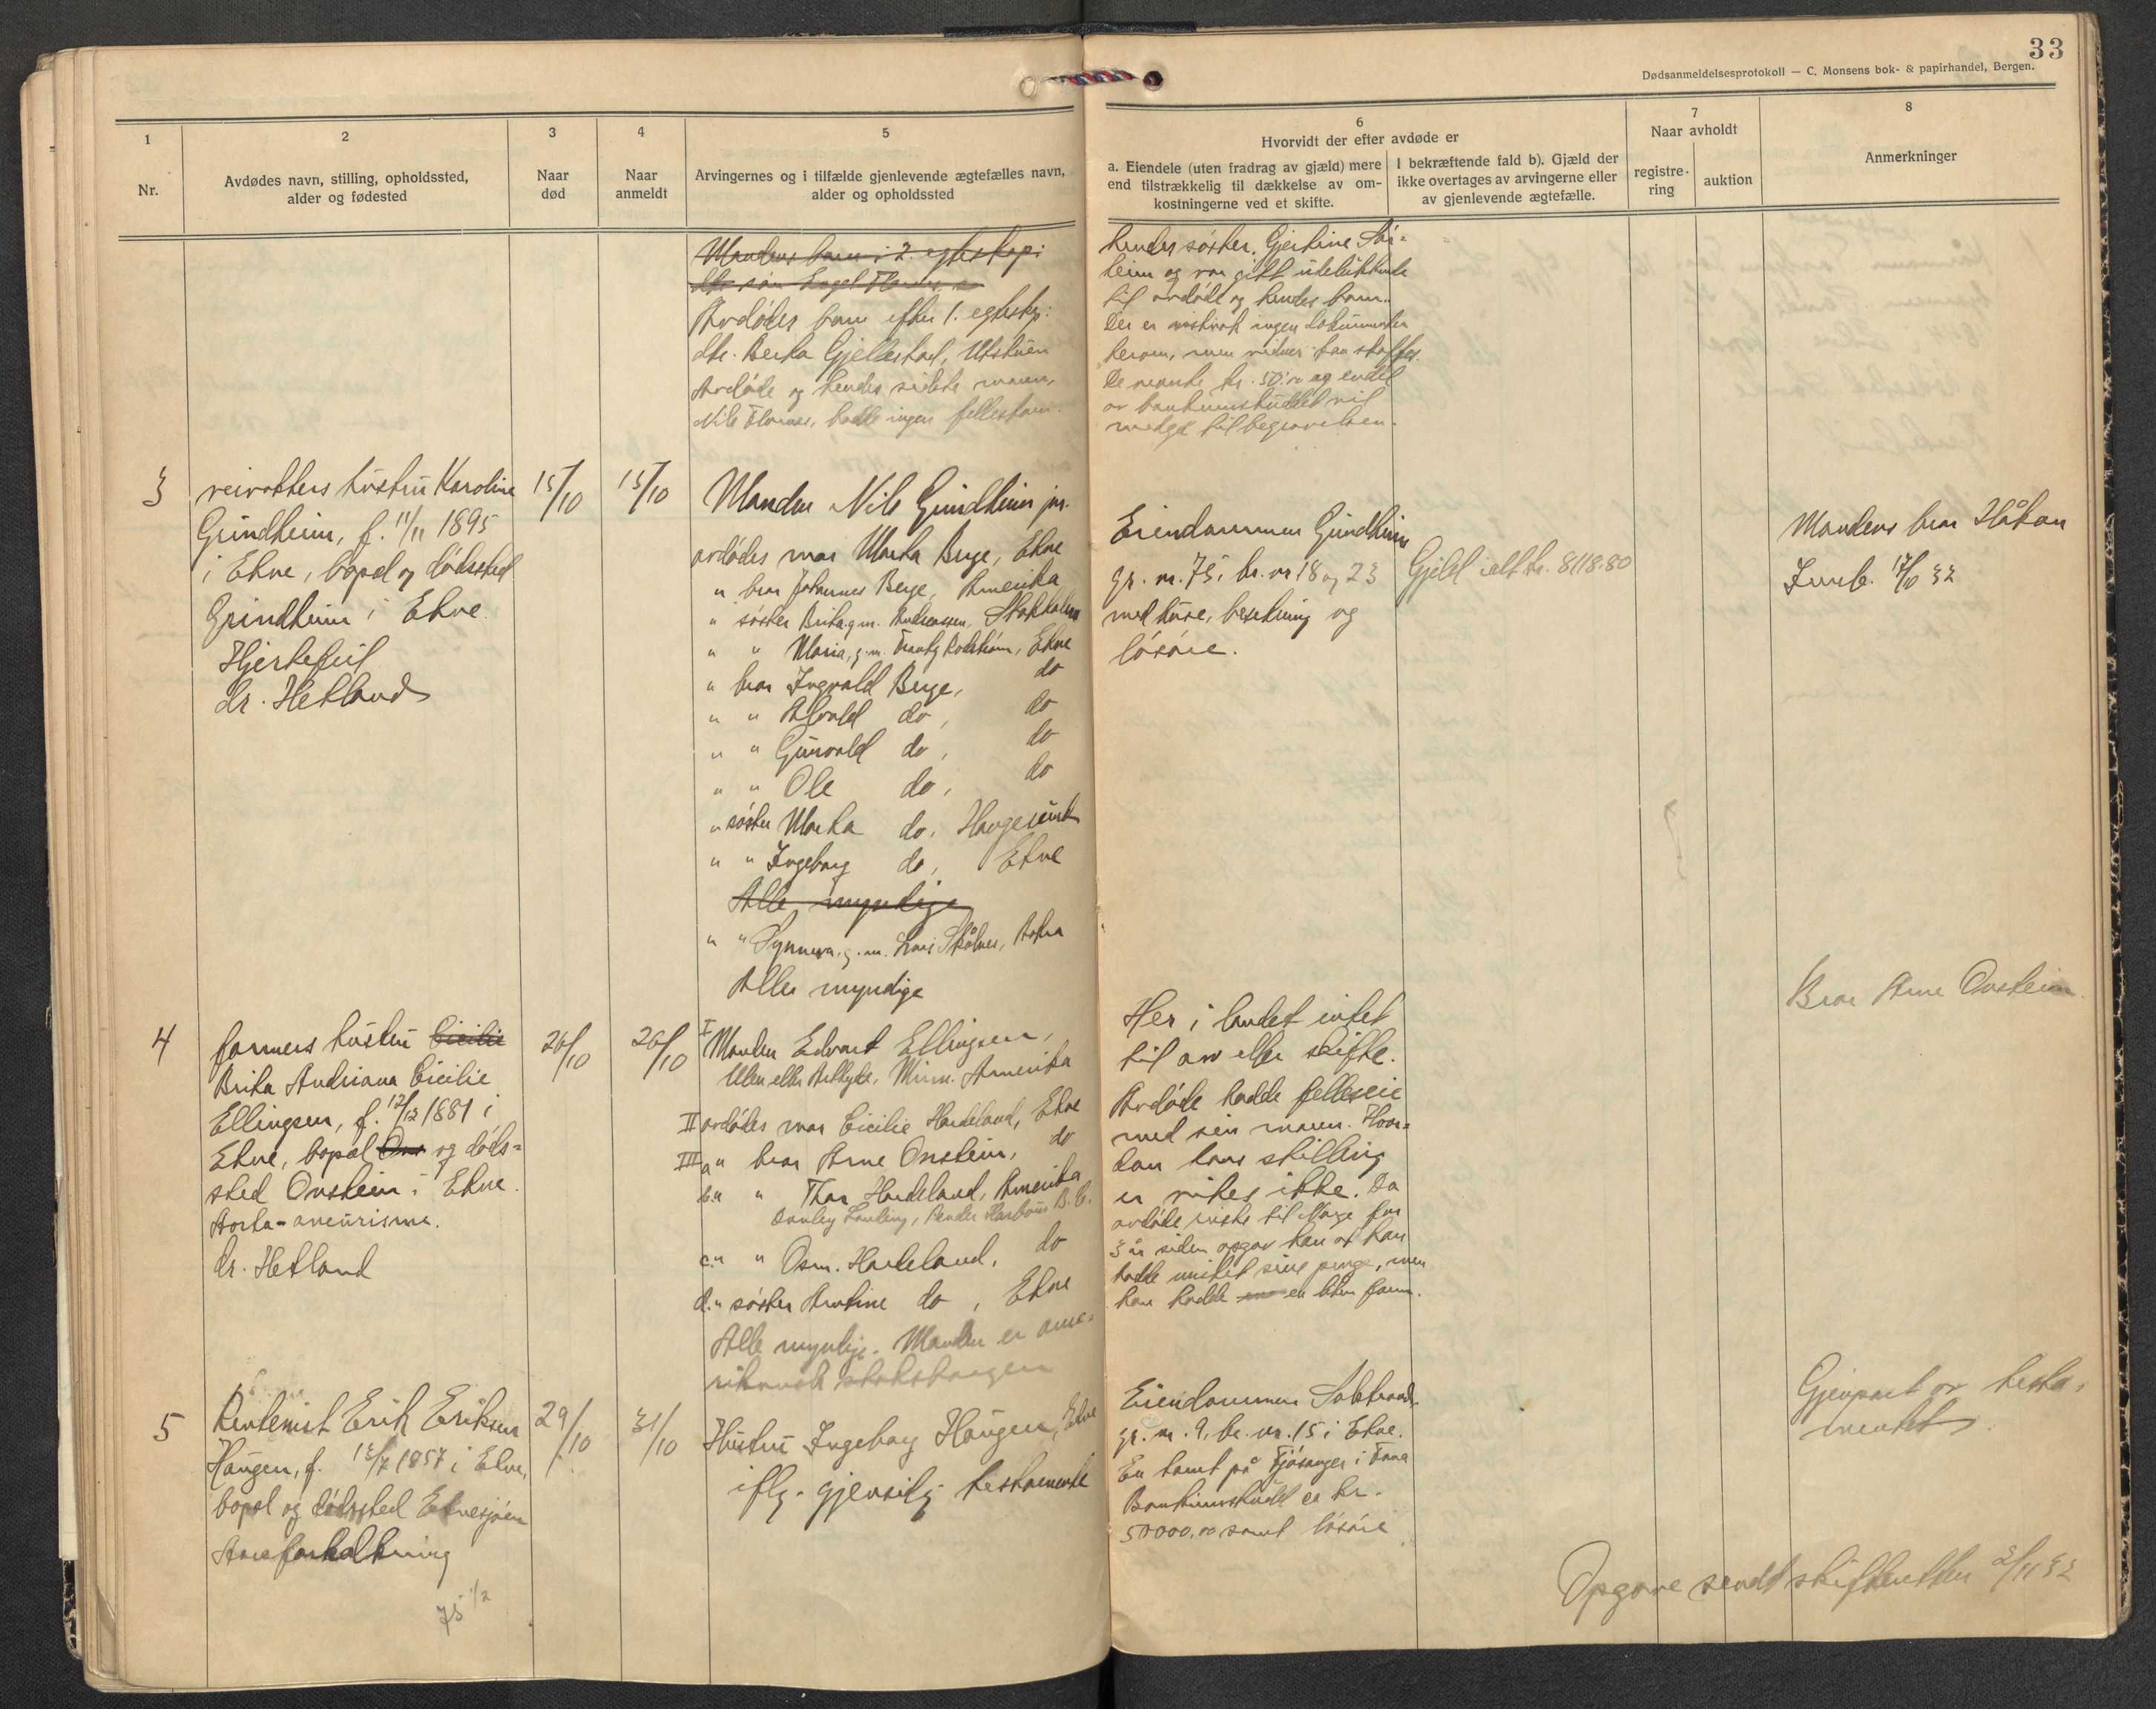 33
Dødsanmeldelsesprotokoll — C. Monsens bok- & papirhandel, Bergen.
1
Nr.
2
Avdødes navn, stilling, opholdssted,
alder og fødested
3
Naar
død
4
Naar
anmeldt
5
Arvingernes og i tilfælde gjenlevende ægtefælles navn,
alder og opholdssted
6
Hvorvidt der efter avdøde er
a. Eiendele (uten fradrag av gjæld) mere
end tilstrækkelig til dækkelse av om-
kostningerne ved et skifte.
I bekræftende fald b). Gjæld der
ikke overtages av arvingerne eller
av gjenlevende ægtefælle.
7
Naar avholdt
registre-
ring
auktion
8
Anmerkninger
Mandens barn i 2. egteskap:
Avdødes barn efter 1. egteskp:
dtr. Berta Gjellestad, Utstuen
Avdøde og hendes sidste mann,
Nils Flornes, hadde ingen fellesbarn.
hendes søster, Gjertine Sør-
heim og var gitt utelukkende
til avdøde og hendes barn.
Der er ingen dokumenter
herom, men vidner kan skaffes.
De nevnte kr. 50.00 og endel
av bankinnskuddet vil
medgå til begravelsen.
3
veivokters hustru Karoline
Grindheim, f. 11/11 1895
i Etne, bopel og dødssted
Grindheim i Etne.
Hjertefeil
dr. Hetland
15/10
15/10
Manden Nils Grindheim jr.
avdødes mor Marta Berge, Etne
" bror Johannes Berge, Amerika
" søster Brita g.m. Andreassen, Stokholm
" " Maria, g.m. Rodstrøm, Etne
" bror Ingvald Berge, do
" " Alvald do, do
" " Gunvald do, do
" " Ole do, do
" søster Marta do, Haugesund
" " Ingeborg do, Etne
Alle myndige
" " Synneva, g.m. Lars Skålnes, Aakra
Alle myndige
Eiendommen Grindheim
gr. nr. 75, br. nr 18 og 23
med huse, besetning og
løsøre.
Gjeld ialt kr. 8118.80
Mandens bror Håkon
Innb. 17/10 32
4
farmers hustru Cicilie
Brita Andriana Cicilie
Ellingsen, f. 12/12 1881 i
Etne, bopel Ons og døds-
sted Onstein i Etne.
Aorta-aneurisme.
dr. Hetland
26/10
26/10
I Manden Edvart Ellingsen,
Ulen eller Minn. Amerika
II avdødes mor Cicilie Hardeland, Etne
III a " bror Arne Onstein, do
b. " " Thor Hardeland, Amerika
Donley Landing, Pender Harbour B.C.
c. " " Osm. Hardeland, do
d. " søster Arntine do, Etne
Alle myndige. Manden er ame-
rikansk statsborger
Her i landet intet
til arv eller skifte.
Avdøde hadde felleseie
med sin mann. Hvor-
dan hans stilling
er vites ikke. Da
avdøde reiste til Norge for
3 år siden opgav han at han
hadde mistet sine penge, men
han hadde en liten farm.
Bror Arne Onstein
5
Rentenist Erik Eriksen
Haugen, f. 13/7 1857 i Etne,
bopel og dødssted Etnesjøen
Aareforkalkning
75 1/2
29/10
31/10
Hustru Ingeborg Haugen, Etne
iflg. gjensidig testamente
Eiendommen Solstrand
gr. nr. 9, br. nr. 15 i Etne.
En tomt på Fjøsanger i Fana
Bankinnskudd ca kr.
50000.00 samt løsøre
Gjenpart av testa-
mentet.
Opgave sendt skifteretten 2/11 32